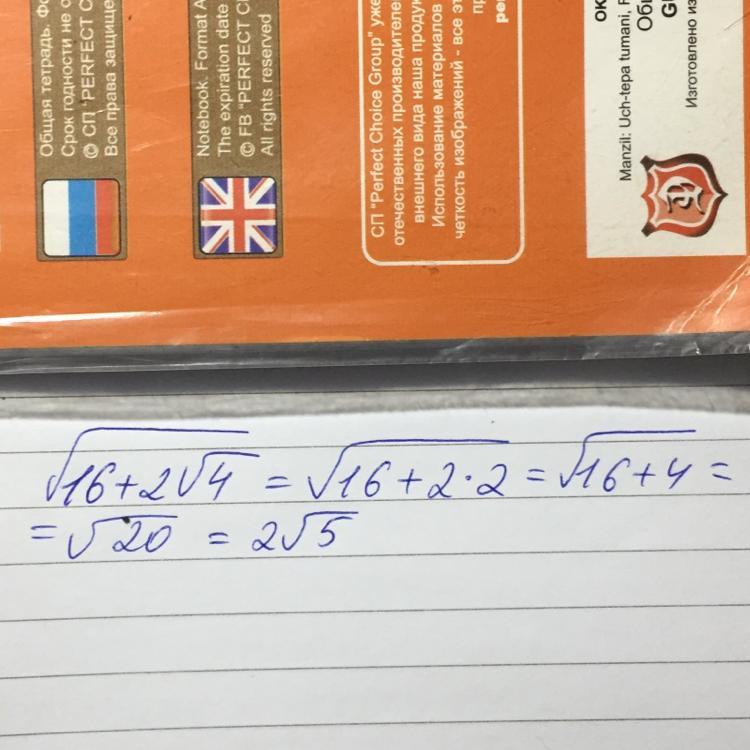 Общая тетрадь. Фо
Срок годности не о
© СП "PERFECT C
Все права защище
Notebook. Format A
The expiration date
© FB "PERFECT C
All rights reserved
СП "Perfect Choice Group" уже
отечественных производителе
внешнего вида наша продук
Использование материалов
четкость изображений - все эт
пр
ре
OK
Manzil: Uch-tepa tumani, F
Общ
G
Изготовлено из
√(16+2√4) = √(16+2·2) = √(16+4) =
= √20 = 2√5